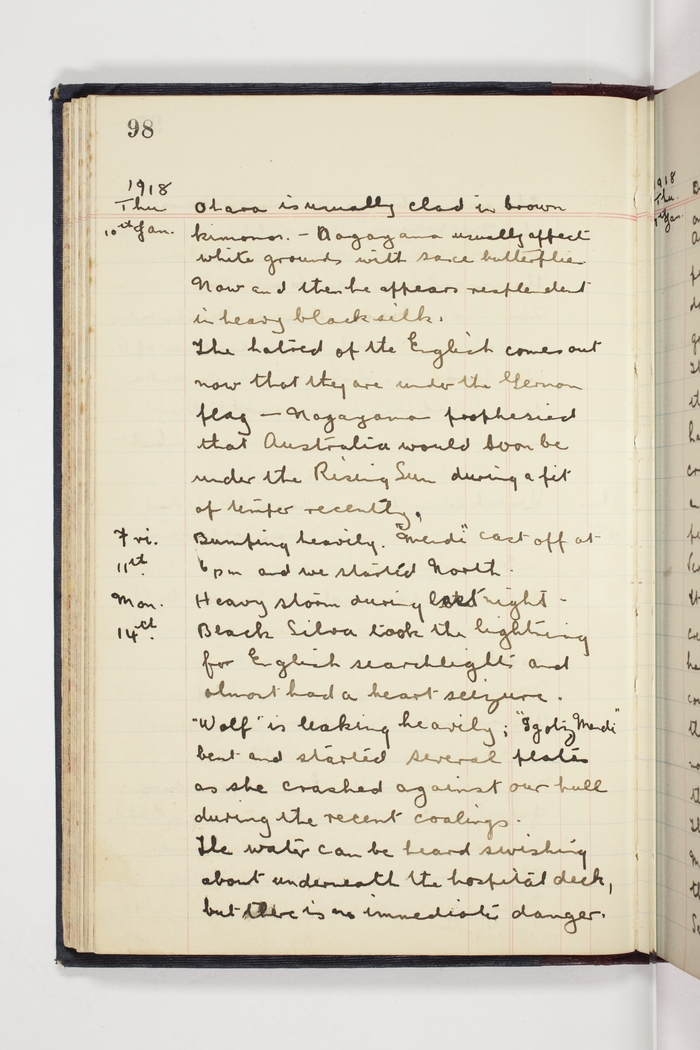 98
1918
Thu
10th Jan.
Ohara is usually clad in brown
kimonos. - Nagayama usually affect
white grounds with saxe butterflies.
Now and then he appears resplendent
in heavy black silk.
The hatred of the English comes out
now that they are under the German
flag - Nagayama prophesied
that Australia would soon be
under the Rising Sun during a fit
of temper recently.
Fri. Bumping heavily. "Mendi" cast off at
11th 6 pm and we started North.
Mon. Heavy storm during last night -
14th Black Silva took the lightning
for English searchlights and
almost had a heart seizure.
"Wolf" is leaking heavily; "Igotz Mendi"
bent and started several plates
as she crashed against our hull
during the recent coalings.
The water can be heard swishing
about underneath the hospital deck,
but there is no immediate danger.
1918
Thu.
Jan.